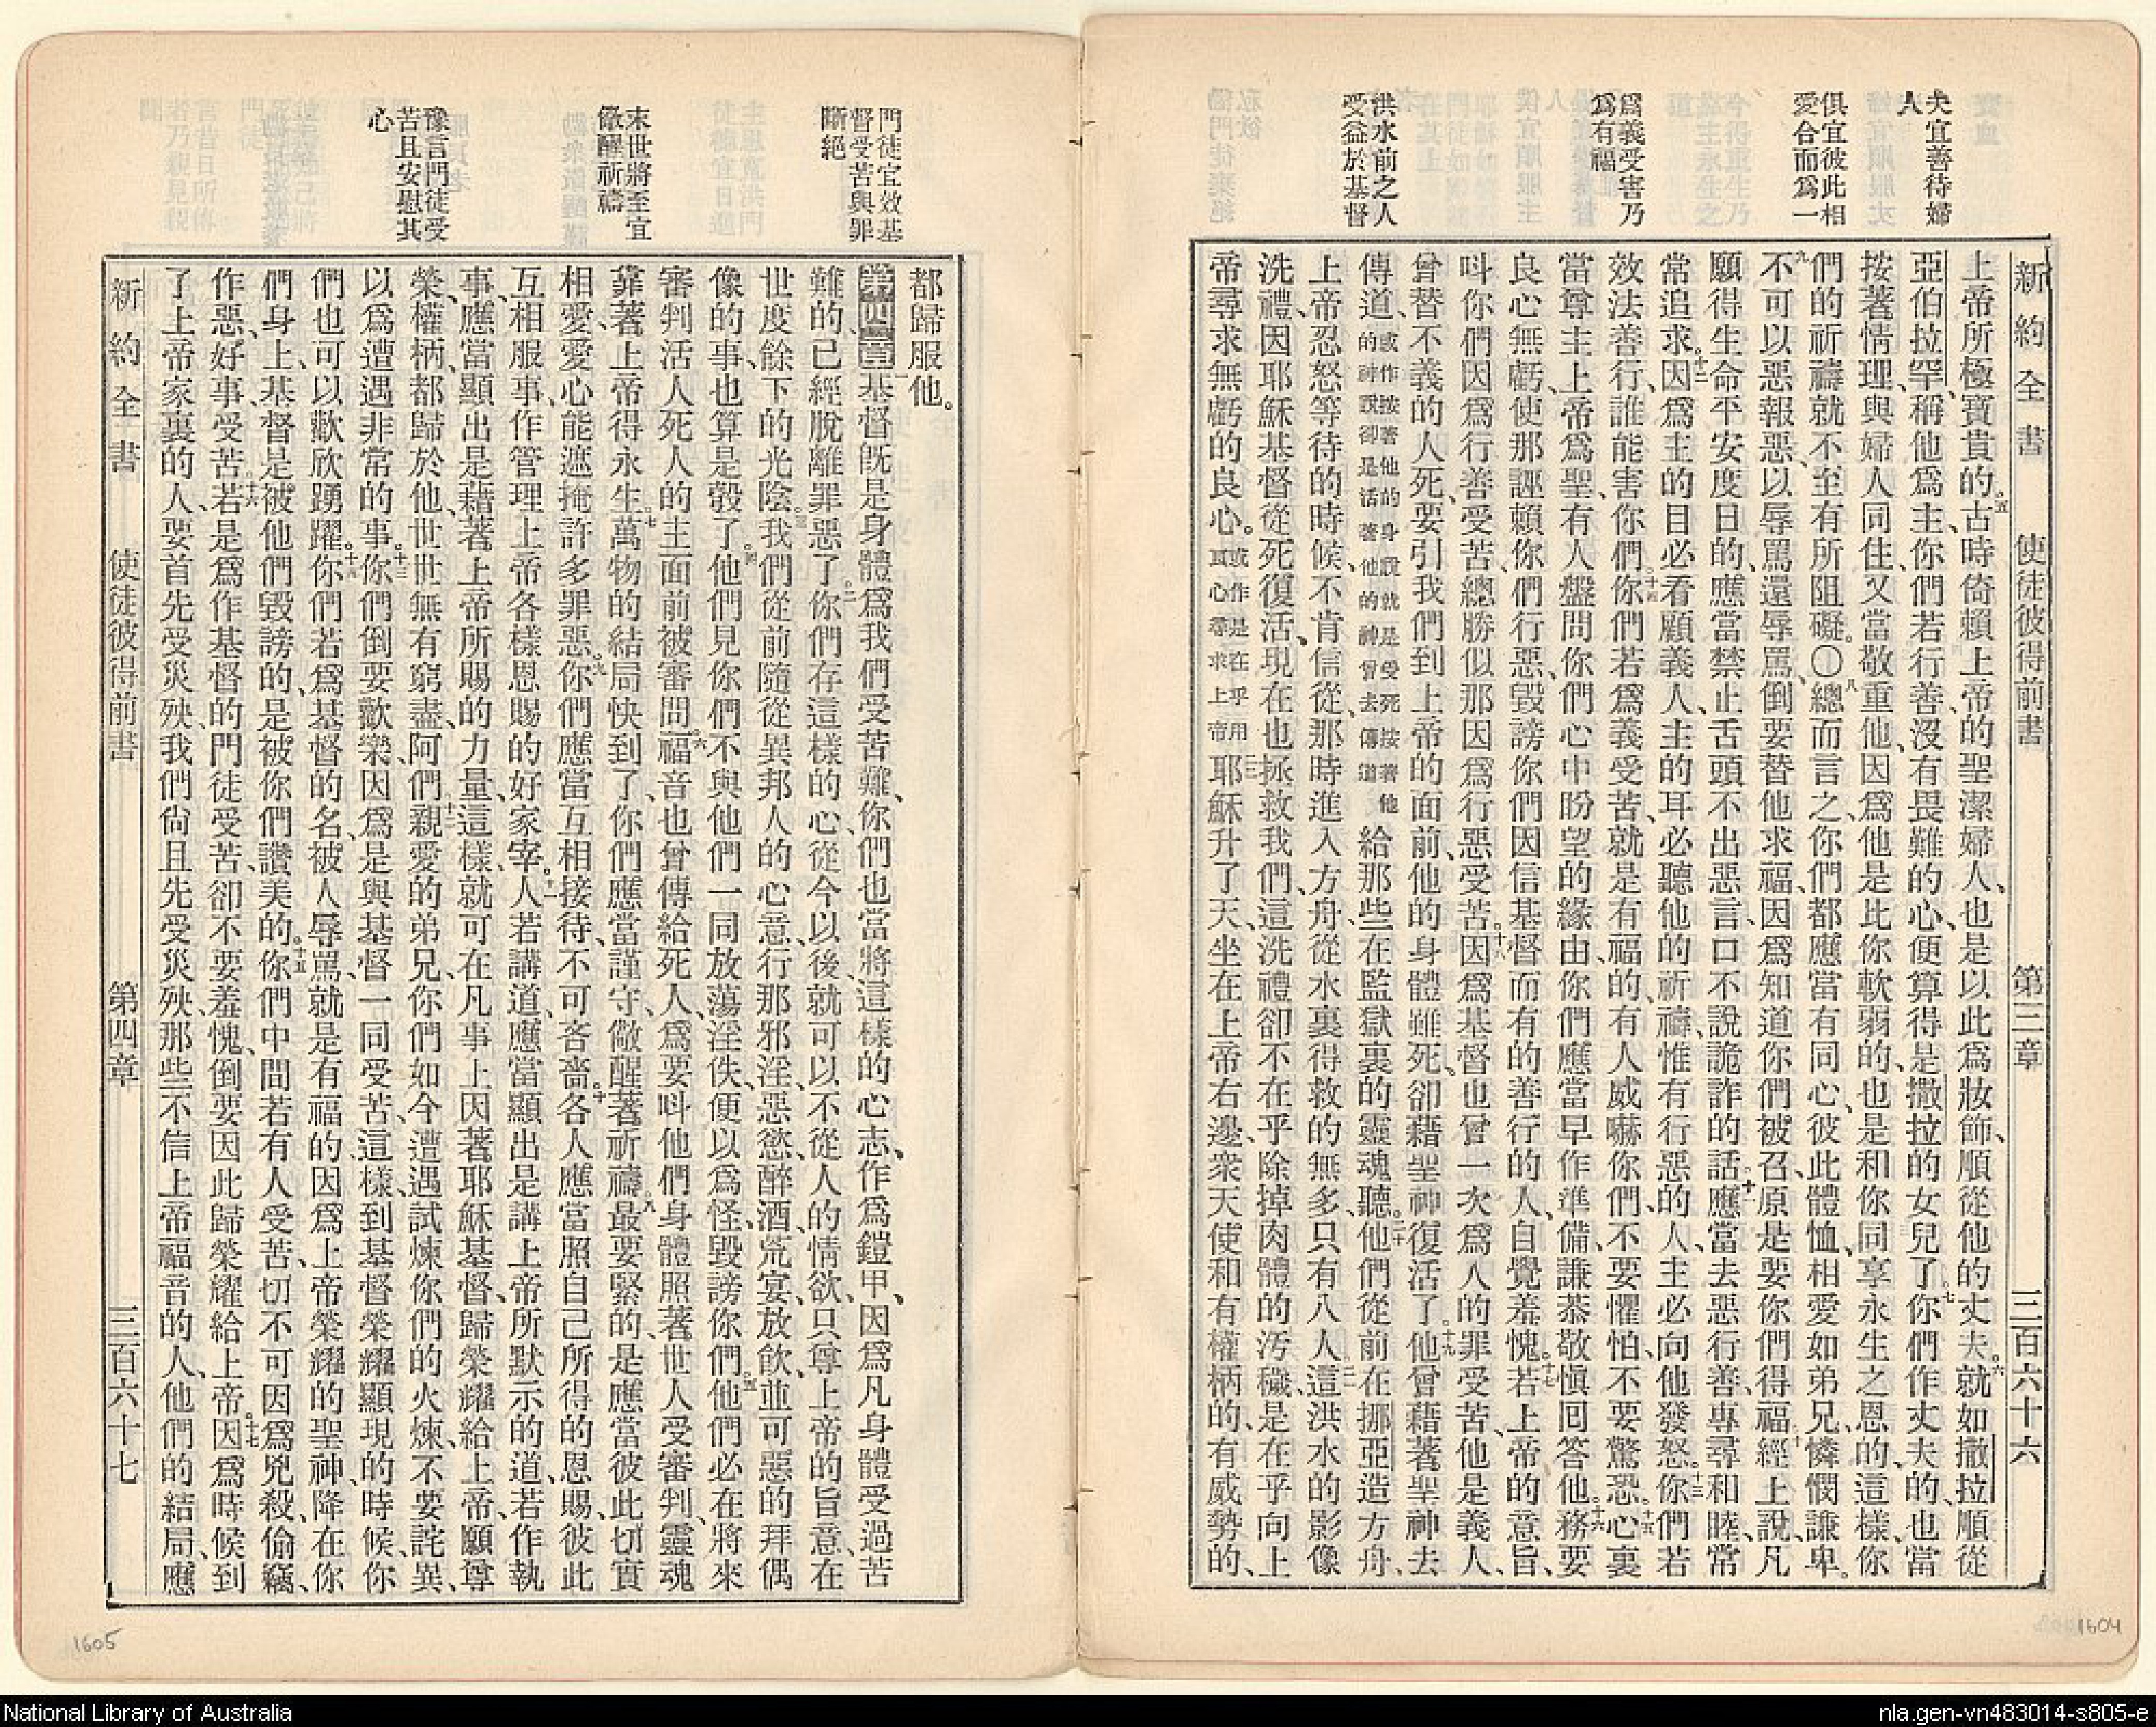 夫宜善待婦
人
俱宜彼此相
愛合而爲一
爲義受害乃
爲有福
洪水前之人
受益於基督
新約全書 使徒彼得前書 第三章 三百六十六
上帝所極寶貴的。五古時倚賴上帝的聖潔婦人、也是以此爲妝飾、順從他的丈夫。六就如撒拉順從
亞伯拉罕、稱他爲主、你們若行善、沒有畏難的心、便算得是撒拉的女兒了。七你們作丈夫的、也當
按著情理、與婦人同住、又當敬重他、因爲他是比你軟弱的、也是和你同享永生之恩的、這樣、你
們的祈禱就不至有所阻礙。〇八總而言之、你們都應當有同心、彼此體恤、相愛如弟兄、憐憫謙卑。
九不可以惡報惡、以辱罵還辱罵、倒要替他求福、因爲知道你們被召、原是要你們得福。十經上說、凡
願得生命平安度日的、應當禁止舌頭不出惡言、口不說詭詐的話。十一應當去惡行善、專尋和睦、常
常追求。十二因爲主的目必看顧義人、主的耳必聽他的祈禱、惟有行惡的人、主必向他發怒。十三你們若
效法善行、誰能害你們。十四你們若爲義受苦、就是有福的、有人威嚇你們、不要懼怕、不要驚恐。十五心裏
當尊主上帝爲聖、有人盤問你們心中盼望的緣由、你們應當早作準備、謙恭敬愼回答他。十六務要
良心無虧、使那誣賴你們行惡、毀謗你們因信基督而有的善行的人、自覺羞愧。十七若上帝的意旨、
呌你們因爲行善受苦、總勝似那因爲行惡受苦。十八因爲基督也曾一次爲人的罪受苦、他是義人、
曾替不義的人死、要引我們到上帝的面前、他的身體雖死、卻藉聖神復活了。十九他曾藉著聖神去
傳道、或作按著他的身說就是受死按著他的神說卻是活著他的神曾去傳道給那些在監獄裏的靈魂聽。二十他們從前在挪亞造方舟、
上帝忍怒等待的時候、不肯信從、那時進入方舟、從水裏得救的無多、只有八人。二一這洪水的影像
洗禮、因耶穌基督從死復活、現在也拯救我們、這洗禮卻不在乎除掉肉體的汚穢、是在乎向上
帝尋求無虧的良心。或作是在乎用眞心尋求上帝二二耶穌升了天、坐在上帝右邊、衆天使和有權柄的、有威勢的、
門徒宜效基
督受苦與罪
斷絕
末世將至宜
儆醒祈禱
豫言門徒受
苦且安慰其
心
都歸服他。
第四章 基督旣是身體爲我們受苦難、你們也當將這樣的心志、作爲鎧甲、因爲凡身體受過苦
難的、已經脫離罪惡了。二你們存這樣的心、從今以後、就可以不從人的情欲、只尊上帝的旨意、在
世度餘下的光陰。三我們從前隨從異邦人的心意、行那邪淫、惡慾、醉酒、荒宴、放飮、並可惡的拜偶
像的事、也算是彀了。四他們見你們不與他們一同放蕩淫佚、便以爲怪、毀謗你們。五他們必在將來
審判活人死人的主面前被審問。六福音也曾傳給死人、爲要呌他們身體照著世人受審判、靈魂
靠著上帝得永生。七萬物的結局快到了、你們應當謹守、儆醒著祈禱。八最要緊的、是應當彼此切實
相愛、愛心能遮掩許多罪惡。九你們應當互相接待、不可吝嗇。十各人應當照自己所得的恩賜、彼此
互相服事、作管理上帝各樣恩賜的好家宰。十一人若講道、應當顯出是講上帝所默示的道、若作執
事、應當顯出是藉著上帝所賜的力量、這樣、就可在凡事上因著耶穌基督、歸榮耀給上帝、願尊
榮、權柄、都歸於他、世世無有窮盡、阿們。十二親愛的弟兄、你們如今遭遇試煉你們的火煉、不要詫異、
以爲遭遇非常的事。十三你們倒要歡樂、因爲是與基督一同受苦、這樣、到基督榮耀顯現的時候、你
們也可以歡欣踴躍。十四你們若爲基督的名、被人辱罵、就是有福的、因爲上帝榮耀的聖神、降在你
們身上、基督是被他們毀謗的、是被你們讚美的。十五你們中間若有人受苦、切不可因爲兇殺、偷竊、
作惡、好事受苦。十六若是爲作基督的門徒受苦、卻不要羞愧、倒要因此歸榮耀給上帝。十七因爲時候到
了、上帝家裏的人、要首先受災殃、我們尙且先受災殃、那些不信上帝福音的人、他們的結局、應
新約全書 使徒彼得前書 第四章 三百六十七
1605
1604
National Library of Australia
nla.gen-vn483014-s805-e